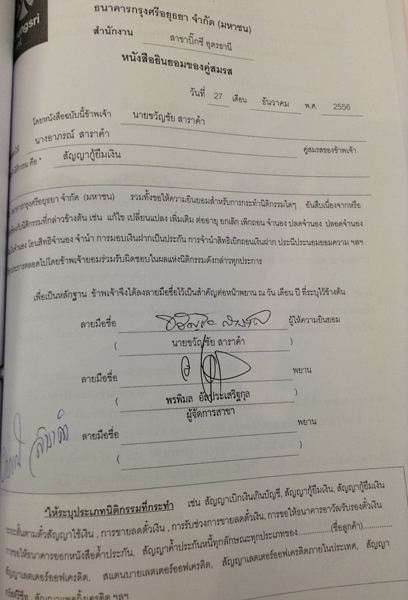 ngsri
ธนาคารกรุงศรีอยุธยา จำกัด (มหาชน)
สำนักงาน สาขาบิ๊กซี อุดรธานี
หนังสือยินยอมของคู่สมรส
วันที่ 27 เดือน ธันวาคม พ.ศ. 2556
โดยหนังสือฉบับนี้ข้าพเจ้า นายขวัญชัย สาราคำ
นางอาภรณ์ สาราคำ คู่สมรสของข้าพเจ้า
นิติกรรม คือ * สัญญากู้ยืมเงิน
ธนาคารกรุงศรีอยุธยา จำกัด (มหาชน) รวมทั้งขอให้ความยินยอมสำหรับการกระทำนิติกรรมใดๆ อันสืบเนื่องจากหรือ
เกี่ยวกับนิติกรรมที่กล่าวข้างต้น เช่น แก้ไข เปลี่ยนแปลง เพิ่มเติม ต่ออายุ ยกเลิก เพิกถอน จำนอง ปลดจำนอง ปลอดจำนอง
โอนสิทธิจำนอง จำนำ การมอบเงินฝากเป็นประกัน การจำนำสิทธิเบิกถอนเงินฝาก ประนีประนอมยอมความ ฯลฯ
ตลอดไปโดยข้าพเจ้ายอมร่วมรับผิดชอบในผลแห่งนิติกรรมดังกล่าวทุกประการ
เพื่อเป็นหลักฐาน ข้าพเจ้าจึงได้ลงลายมือชื่อไว้เป็นสำคัญต่อหน้าพยาน ณ วัน เดือน ปี ที่ระบุไว้ข้างต้น
ลายมือชื่อ ผู้ให้ความยินยอม
( นายขวัญชัย สาราคำ )
ลายมือชื่อ พยาน
( พรพิมล อัลประเสริฐกุล )
ผู้จัดการสาขา
ลายมือชื่อ พยาน
( )
*ให้ระบุประเภทนิติกรรมที่กระทำ เช่น สัญญาเบิกเงินเกินบัญชี, สัญญากู้ยืมเงิน, สัญญากู้ยืมเงิน
ระยะสั้นตามตั๋วสัญญาใช้เงิน , การขายลดตั๋วเงิน , การรับช่วงการขายลดตั๋วเงิน, การขอให้ธนาคารอาวัล/รับรองตั๋วเงิน
การขอให้ธนาคารออกหนังสือค้ำประกัน, สัญญาค้ำประกันหนี้ทุกลักษณะทุกประเภทของ............(ชื่อลูกค้า)............
สัญญาเลตเตอร์ออฟเครดิต, สแตนบายเลตเตอร์ออฟเครดิต, สัญญาเลตเตอร์ออฟเครดิตภายในประเทศ, สัญญา
ทรัสต์รีซีท, สัญญาแพคกิ้งเครดิต ฯลฯ